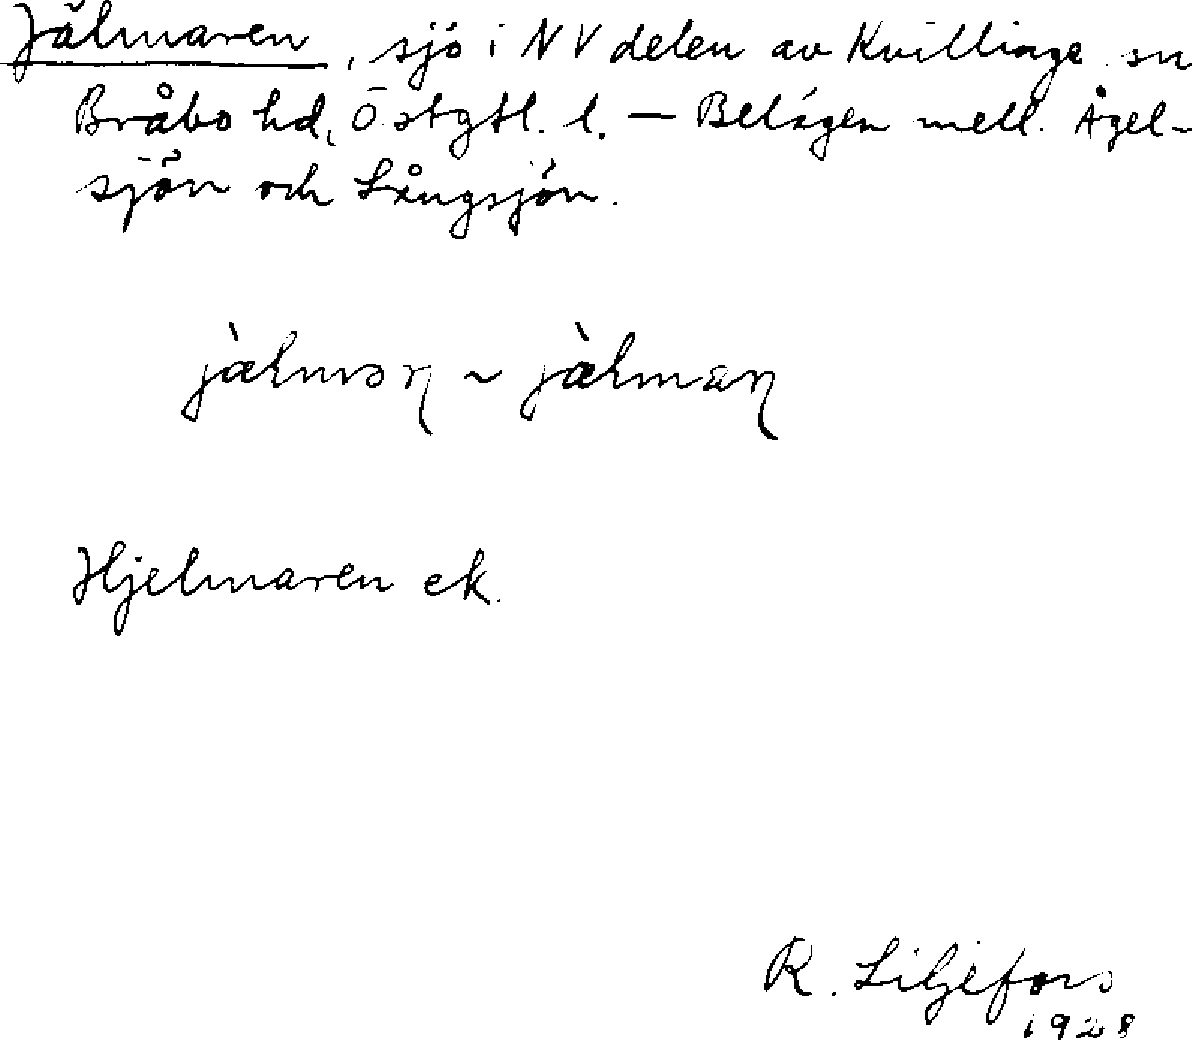 Jälmaren, sjö i NV delen av Kvillinge sn
Bråbo hd, Östgtl. l. — Belägen mell. Ågel-
sjön och Långsjön.
Hjelmaren ek.
R. Liljefors
1928